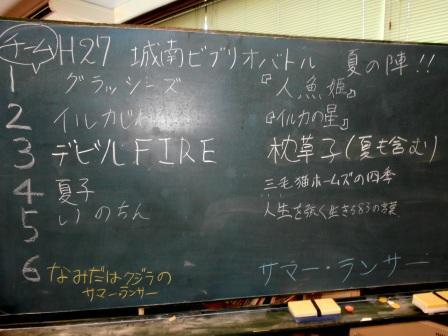 チーム H27 城南ビブリオバトル 夏の陣!!
1 グラッシーズ 『人魚姫』
2 イルカじ 『イルカの星』
3 デビルFIRE 枕草子(夏も含む)
4 夏子 三毛猫ホームズの四季
5 いのちん 人生を強く生きる83の言葉
6 なみだはクジラの サマー・ランサー
サマーランサー